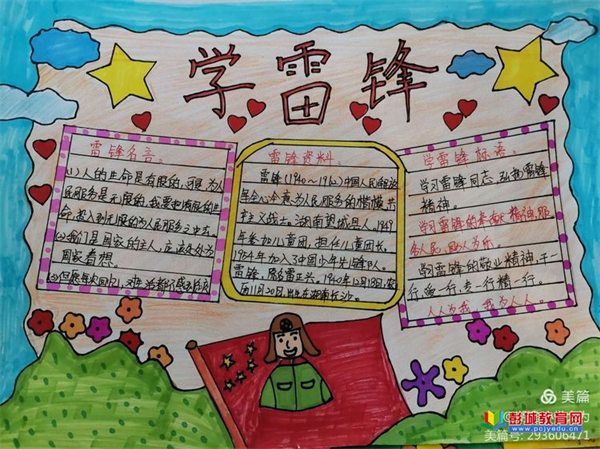 学雷锋
雷锋名言。
(1)人的生命是有限的,可是,为人
民服务是无限的,我要把有限的生
命,投入到无限的为人民服务之中去。
(2)我们是国家的主人,应该处处为
国家着想。
雷锋资料。
雷锋(1940~1962)中国人民解放
军全心全意为人民服务的楷模,共
产主义战士;湖南望城县人,1949
年参加儿童团,担任儿童团长。
1954年加入了中国少年先锋队。
雷锋,原名雷正兴。1940年12月18日,农
历11月20日,出生在湖南长沙。
学雷锋标语。
学习雷锋同志,弘扬雷锋
精神。
学习雷锋的奉献精神,服
务人民,助人为乐。
学习雷锋的敬业精神,干一
行,爱一行,专一行,精一行。
人人为我,我为人人。
美篇
彭城教育网
www.pcjyedu.cn
美篇号: 293606471